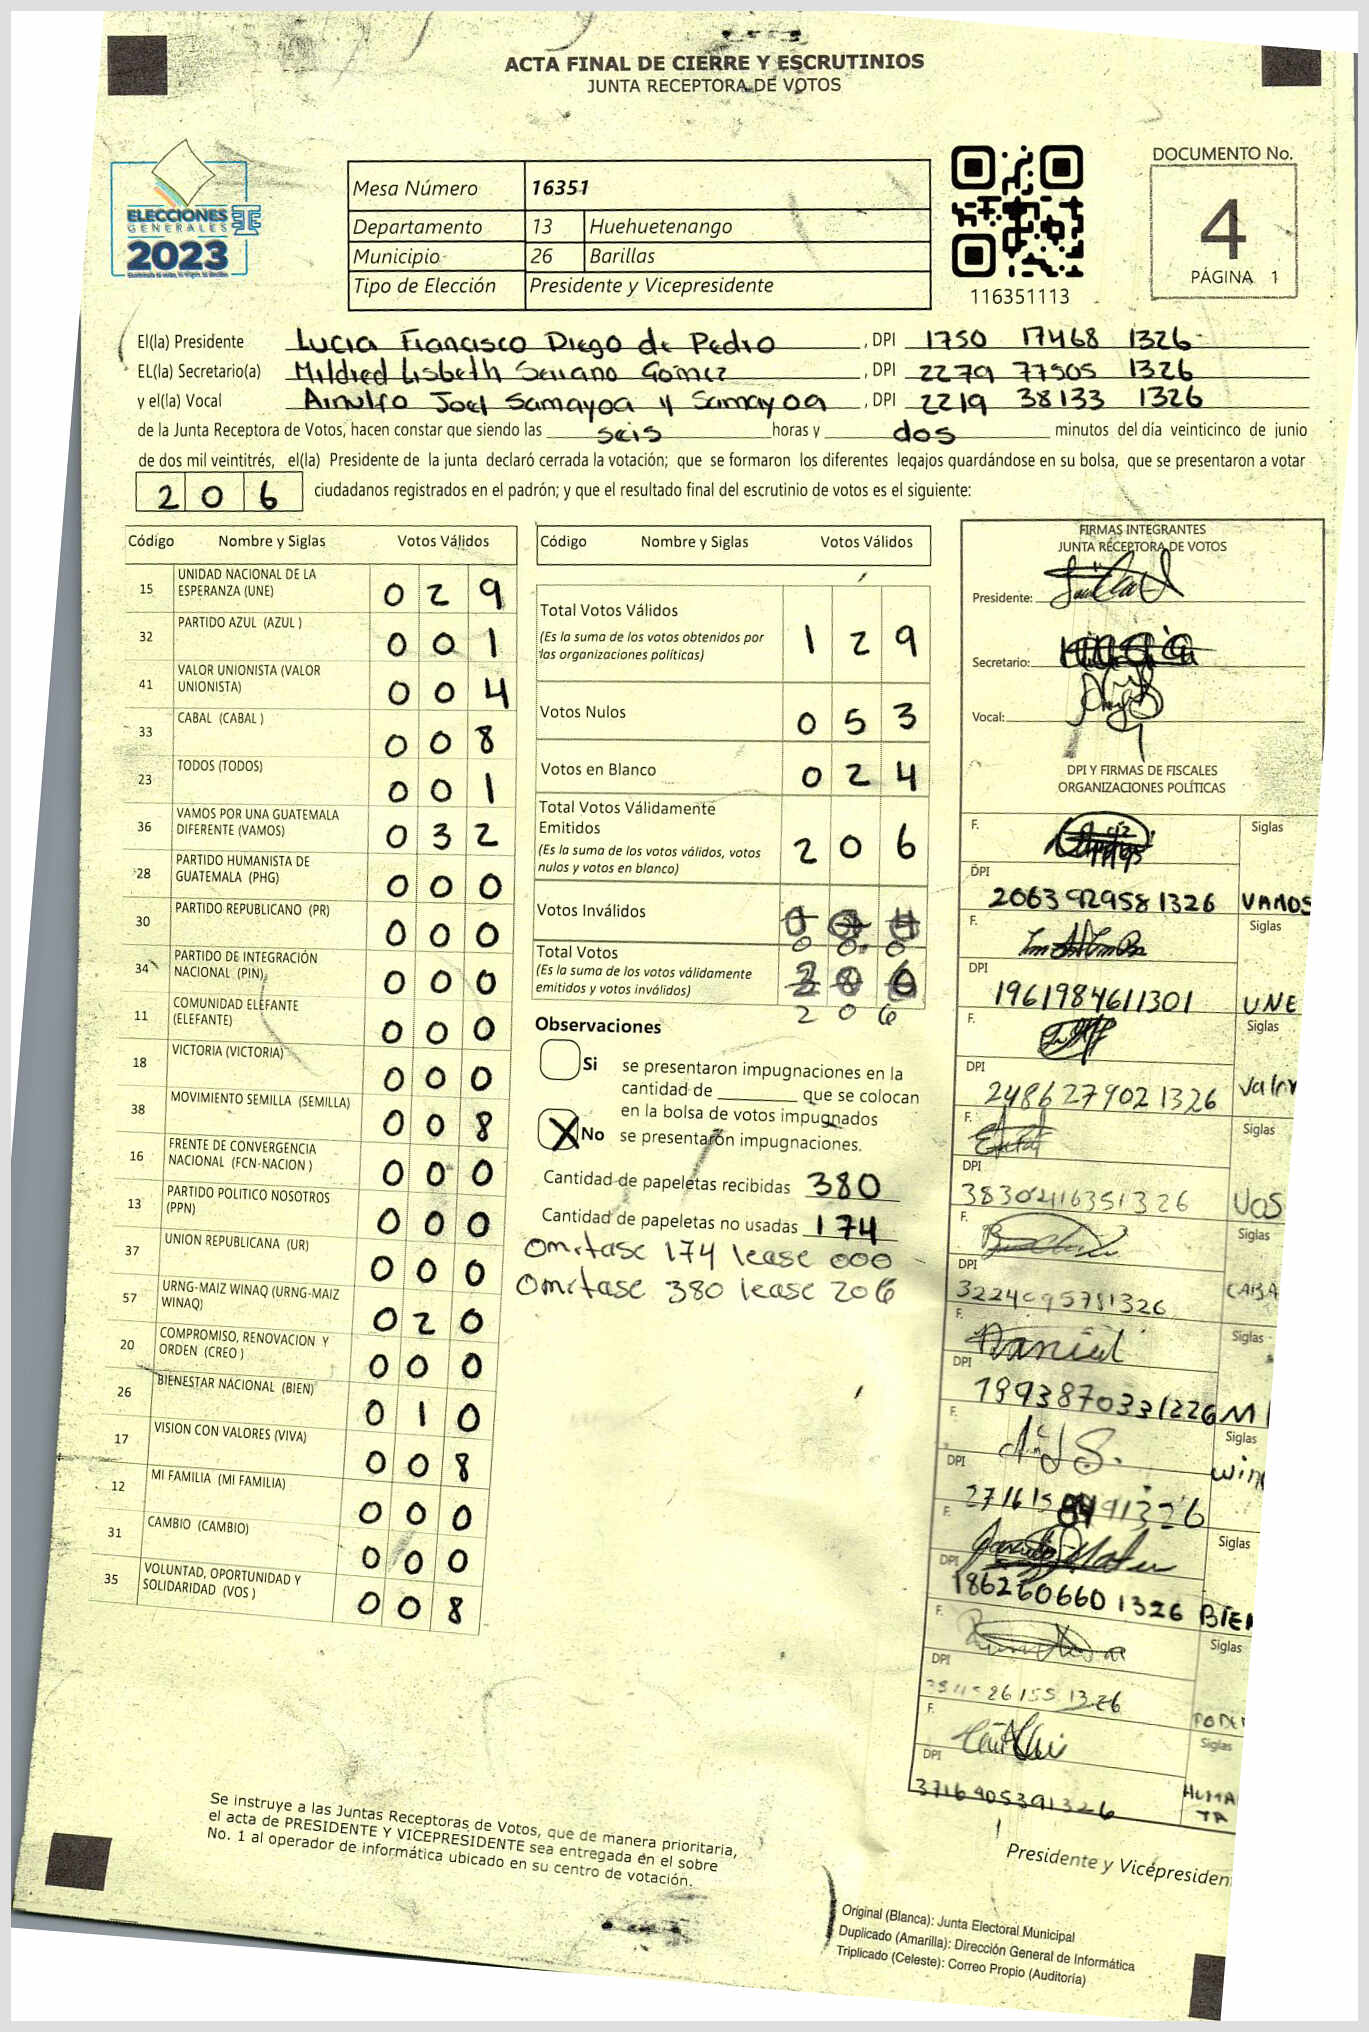 ACTA FINAL DE CIERRE Y ESCRUTINIOS
JUNTA RECEPTORA DE VOTOS
ELECCIONES
GENERALES
2023
Mesa Número 16351
Departamento 13 Huehuetenango
Municipio 26 Barillas
Tipo de Elección Presidente y Vicepresidente
116351113
DOCUMENTO No.
4
PÁGINA 1
El(la) Presidente Lucia Francisco Diego de Pedro , DPI 1750 17468 1326
EL(la) Secretario(a) Mildred Lisbeth Serrano Gómez , DPI 2279 77505 1326
y el(la) Vocal Arnulfo Joel Samayoa y Samayoa , DPI 2219 38133 1326
de la Junta Receptora de Votos, hacen constar que siendo las seis horas y dos minutos del día veinticinco de junio
de dos mil veintitrés, el(la) Presidente de la junta declaró cerrada la votación; que se formaron los diferentes legajos guardándose en su bolsa, que se presentaron a votar
206 ciudadanos registrados en el padrón; y que el resultado final del escrutinio de votos es el siguiente:
Código Nombre y Siglas Votos Válidos
15 UNIDAD NACIONAL DE LA
ESPERANZA (UNE) 0 2 9
32 PARTIDO AZUL (AZUL ) 0 0 1
41 VALOR UNIONISTA (VALOR
UNIONISTA) 0 0 4
33 CABAL (CABAL ) 0 0 8
23 TODOS (TODOS) 0 0 1
36 VAMOS POR UNA GUATEMALA
DIFERENTE (VAMOS) 0 3 2
28 PARTIDO HUMANISTA DE
GUATEMALA (PHG) 0 0 0
30 PARTIDO REPUBLICANO (PR) 0 0 0
34 PARTIDO DE INTEGRACIÓN
NACIONAL (PIN) 0 0 0
11 COMUNIDAD ELEFANTE
(ELEFANTE) 0 0 0
18 VICTORIA (VICTORIA) 0 0 0
38 MOVIMIENTO SEMILLA (SEMILLA) 0 0 8
16 FRENTE DE CONVERGENCIA
NACIONAL (FCN-NACION ) 0 0 0
13 PARTIDO POLITICO NOSOTROS
(PPN) 0 0 0
37 UNION REPUBLICANA (UR) 0 0 0
57 URNG-MAIZ WINAQ (URNG-MAIZ
WINAQ) 0 2 0
20 COMPROMISO, RENOVACION Y
ORDEN (CREO ) 0 0 0
26 BIENESTAR NACIONAL (BIEN) 0 1 0
17 VISION CON VALORES (VIVA) 0 0 8
12 MI FAMILIA (MI FAMILIA) 0 0 0
31 CAMBIO (CAMBIO) 0 0 0
35 VOLUNTAD, OPORTUNIDAD Y
SOLIDARIDAD (VOS ) 0 0 8
Código Nombre y Siglas Votos Válidos
Total Votos Válidos 1 2 9
(Es la suma de los votos obtenidos por
las organizaciones políticas)
Votos Nulos 0 5 3
Votos en Blanco 0 2 4
Total Votos Válidamente
Emitidos 2 0 6
(Es la suma de los votos válidos, votos
nulos y votos en blanco)
Votos Inválidos
0 0 0
Total Votos
(Es la suma de los votos válidamente
emitidos y votos inválidos)
2 0 6
Observaciones
Si se presentaron impugnaciones en la
cantidad de ________ que se colocan
en la bolsa de votos impugnados
X No se presentarón impugnaciones.
Cantidad de papeletas recibidas 380
Cantidad de papeletas no usadas 174
Omitase 174 lease 000
Omitase 380 lease 206
FIRMAS INTEGRANTES
JUNTA RECEPTORA DE VOTOS
Presidente:
Secretario:
Vocal:
DPI Y FIRMAS DE FISCALES
ORGANIZACIONES POLÍTICAS
F. Siglas
DPI 2063929581326 VAMOS
F. Siglas
DPI 1961984611301 UNE
F. Siglas
DPI 2486279021326 Valor
F. Siglas
DPI 3830416351326 VOS
F. Siglas
DPI 3224095781326 CABA
F. Daniel Siglas
DPI 1993870331226 M
F. Siglas
DPI win
F. Siglas
DPI 1862606601326 BIEN
F. Siglas
DPI PODE
F. Siglas
DPI 3716905391326 HUMA
TA
Presidente y Vicepresiden
Se instruye a las Juntas Receptoras de Votos, que de manera prioritaria,
el acta de PRESIDENTE Y VICEPRESIDENTE sea entregada en el sobre
No. 1 al operador de informática ubicado en su centro de votación.
Original (Blanca): Junta Electoral Municipal
Duplicado (Amarilla): Dirección General de Informática
Triplicado (Celeste): Correo Propio (Auditoría)